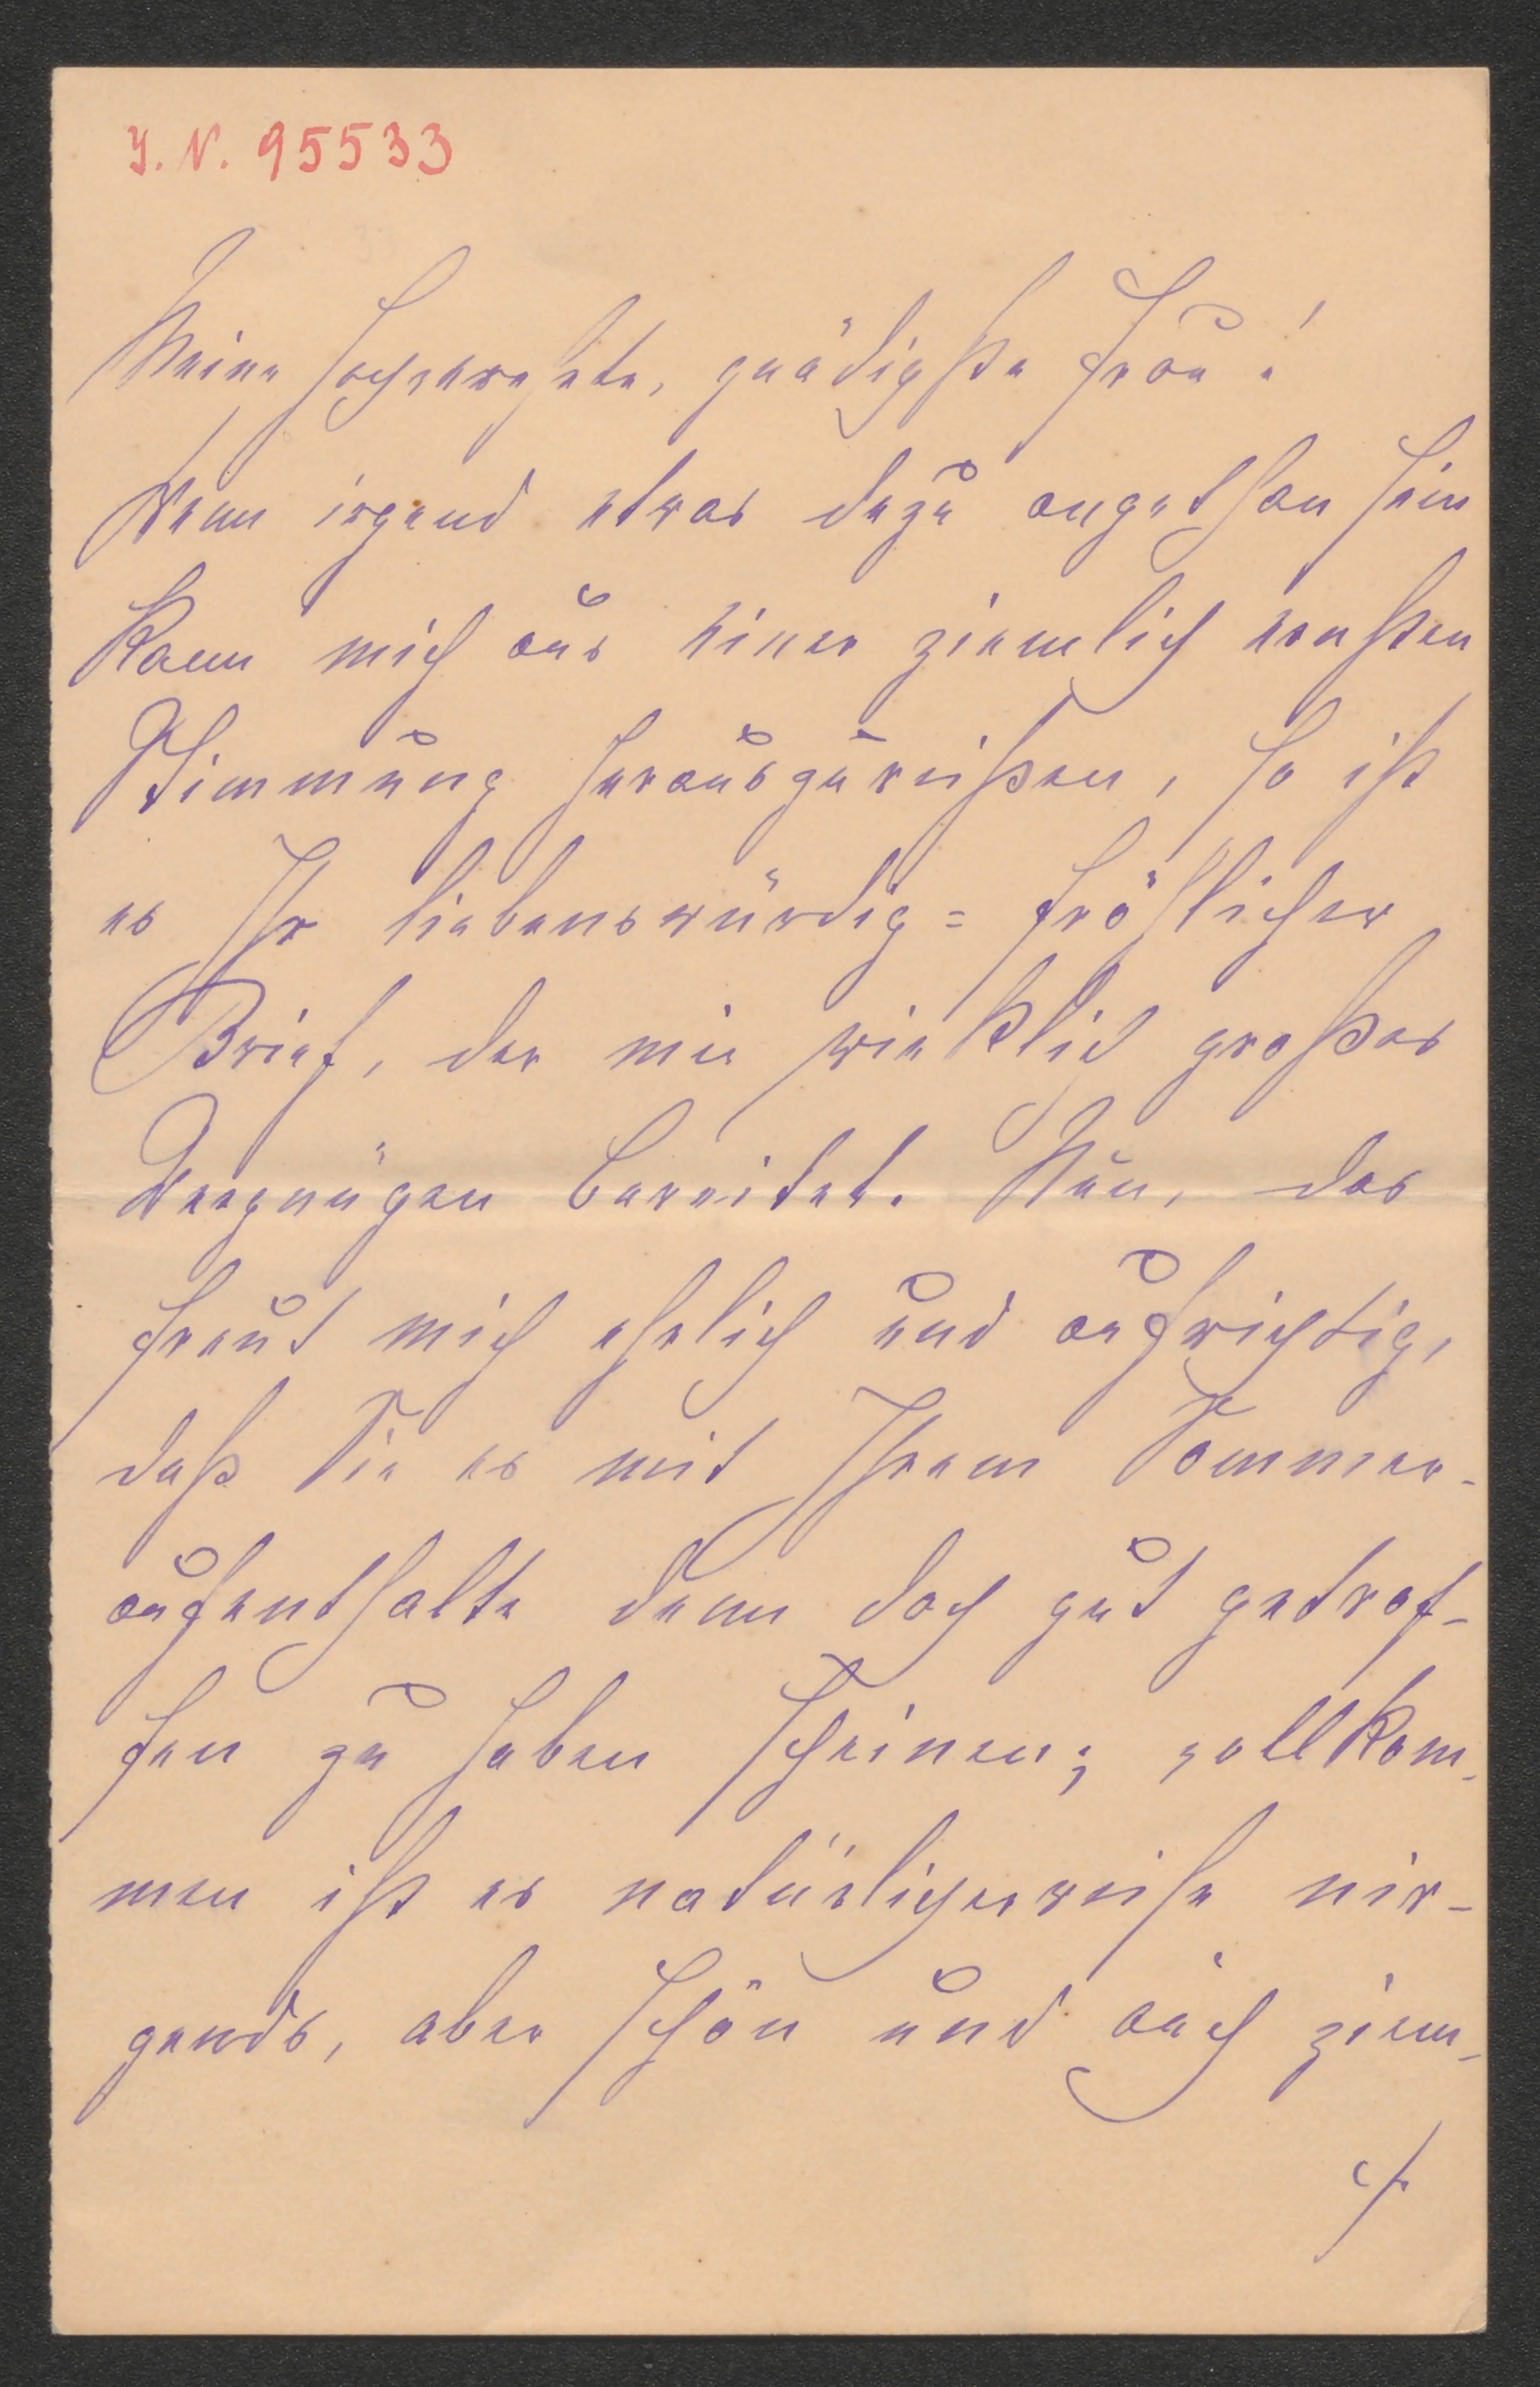 J. N. 95533
Meine hochverehrte, gnädigste Frau!
Wenn irgend etwas dazu angethan sein
kann mich aus einer ziemlich ernsten
Stimmung herauszureißen, so ist
es Ihr liebenswürdig=fröhlicher
Brief, der mir wirklich großes
Vergnügen bereitet. Nun, das
freut mich ehrlich und aufrichtig,
daß Sie es mit Ihrem Sommer-
aufenthalte denn doch gut getrof-
fen zu haben scheinen; vollkom-
men ist es natürlicherweise nir-
gends, aber schön und auch ziem-